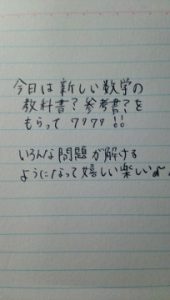 今日は新しい数学の
教科書?参考書?を
もらってワクワク!!
いろんな問題が解ける
ようになって嬉しい楽しい〜。